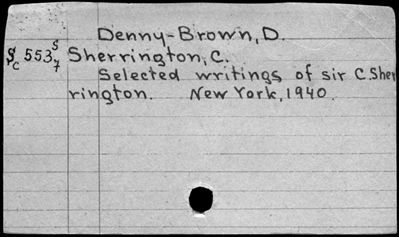 Denny-Brown, D.
$c 553 s/7 Sherrington, C.
Selected writings of sir C. Sher
rington. New York, 1940.